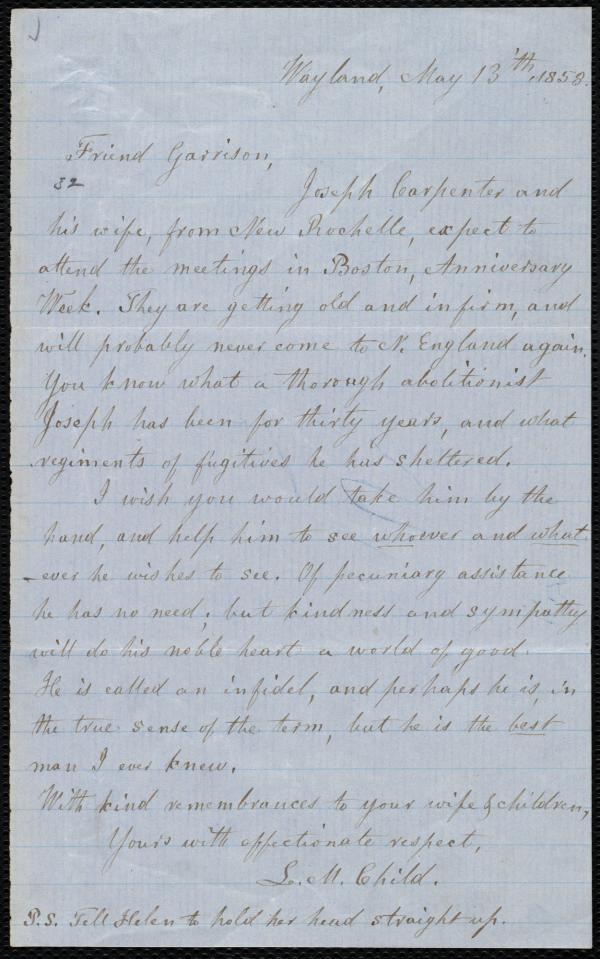 Wayland, May 13'th, 1858.
Friend Garrison,
32
Joseph Carpenter and
his wife, from New Rochelle, expect to
attend the meetings in Boston, Anniversary
Week. They are getting old and infirm, and
will probably never come to N. England again.
You know what a thorough abolitionist
Joseph has been for thirty years, and what
regiments of fugitives he has sheltered.
I wish you would take him by the
hand, and help him to see whoever and what
-ever he wishes to see. Of pecuniary assistance
he has no need; but kindness and sympathy
will do his noble heart a world of good.
He is called an infidel, and perhaps he is, in
the true sense of the term, but he is the best
man I ever knew.
With kind remembrances to your wife & children,
Yours with affectionate respect,
L. M. Child.
P.S. Tell Helen to hold her head straight up.